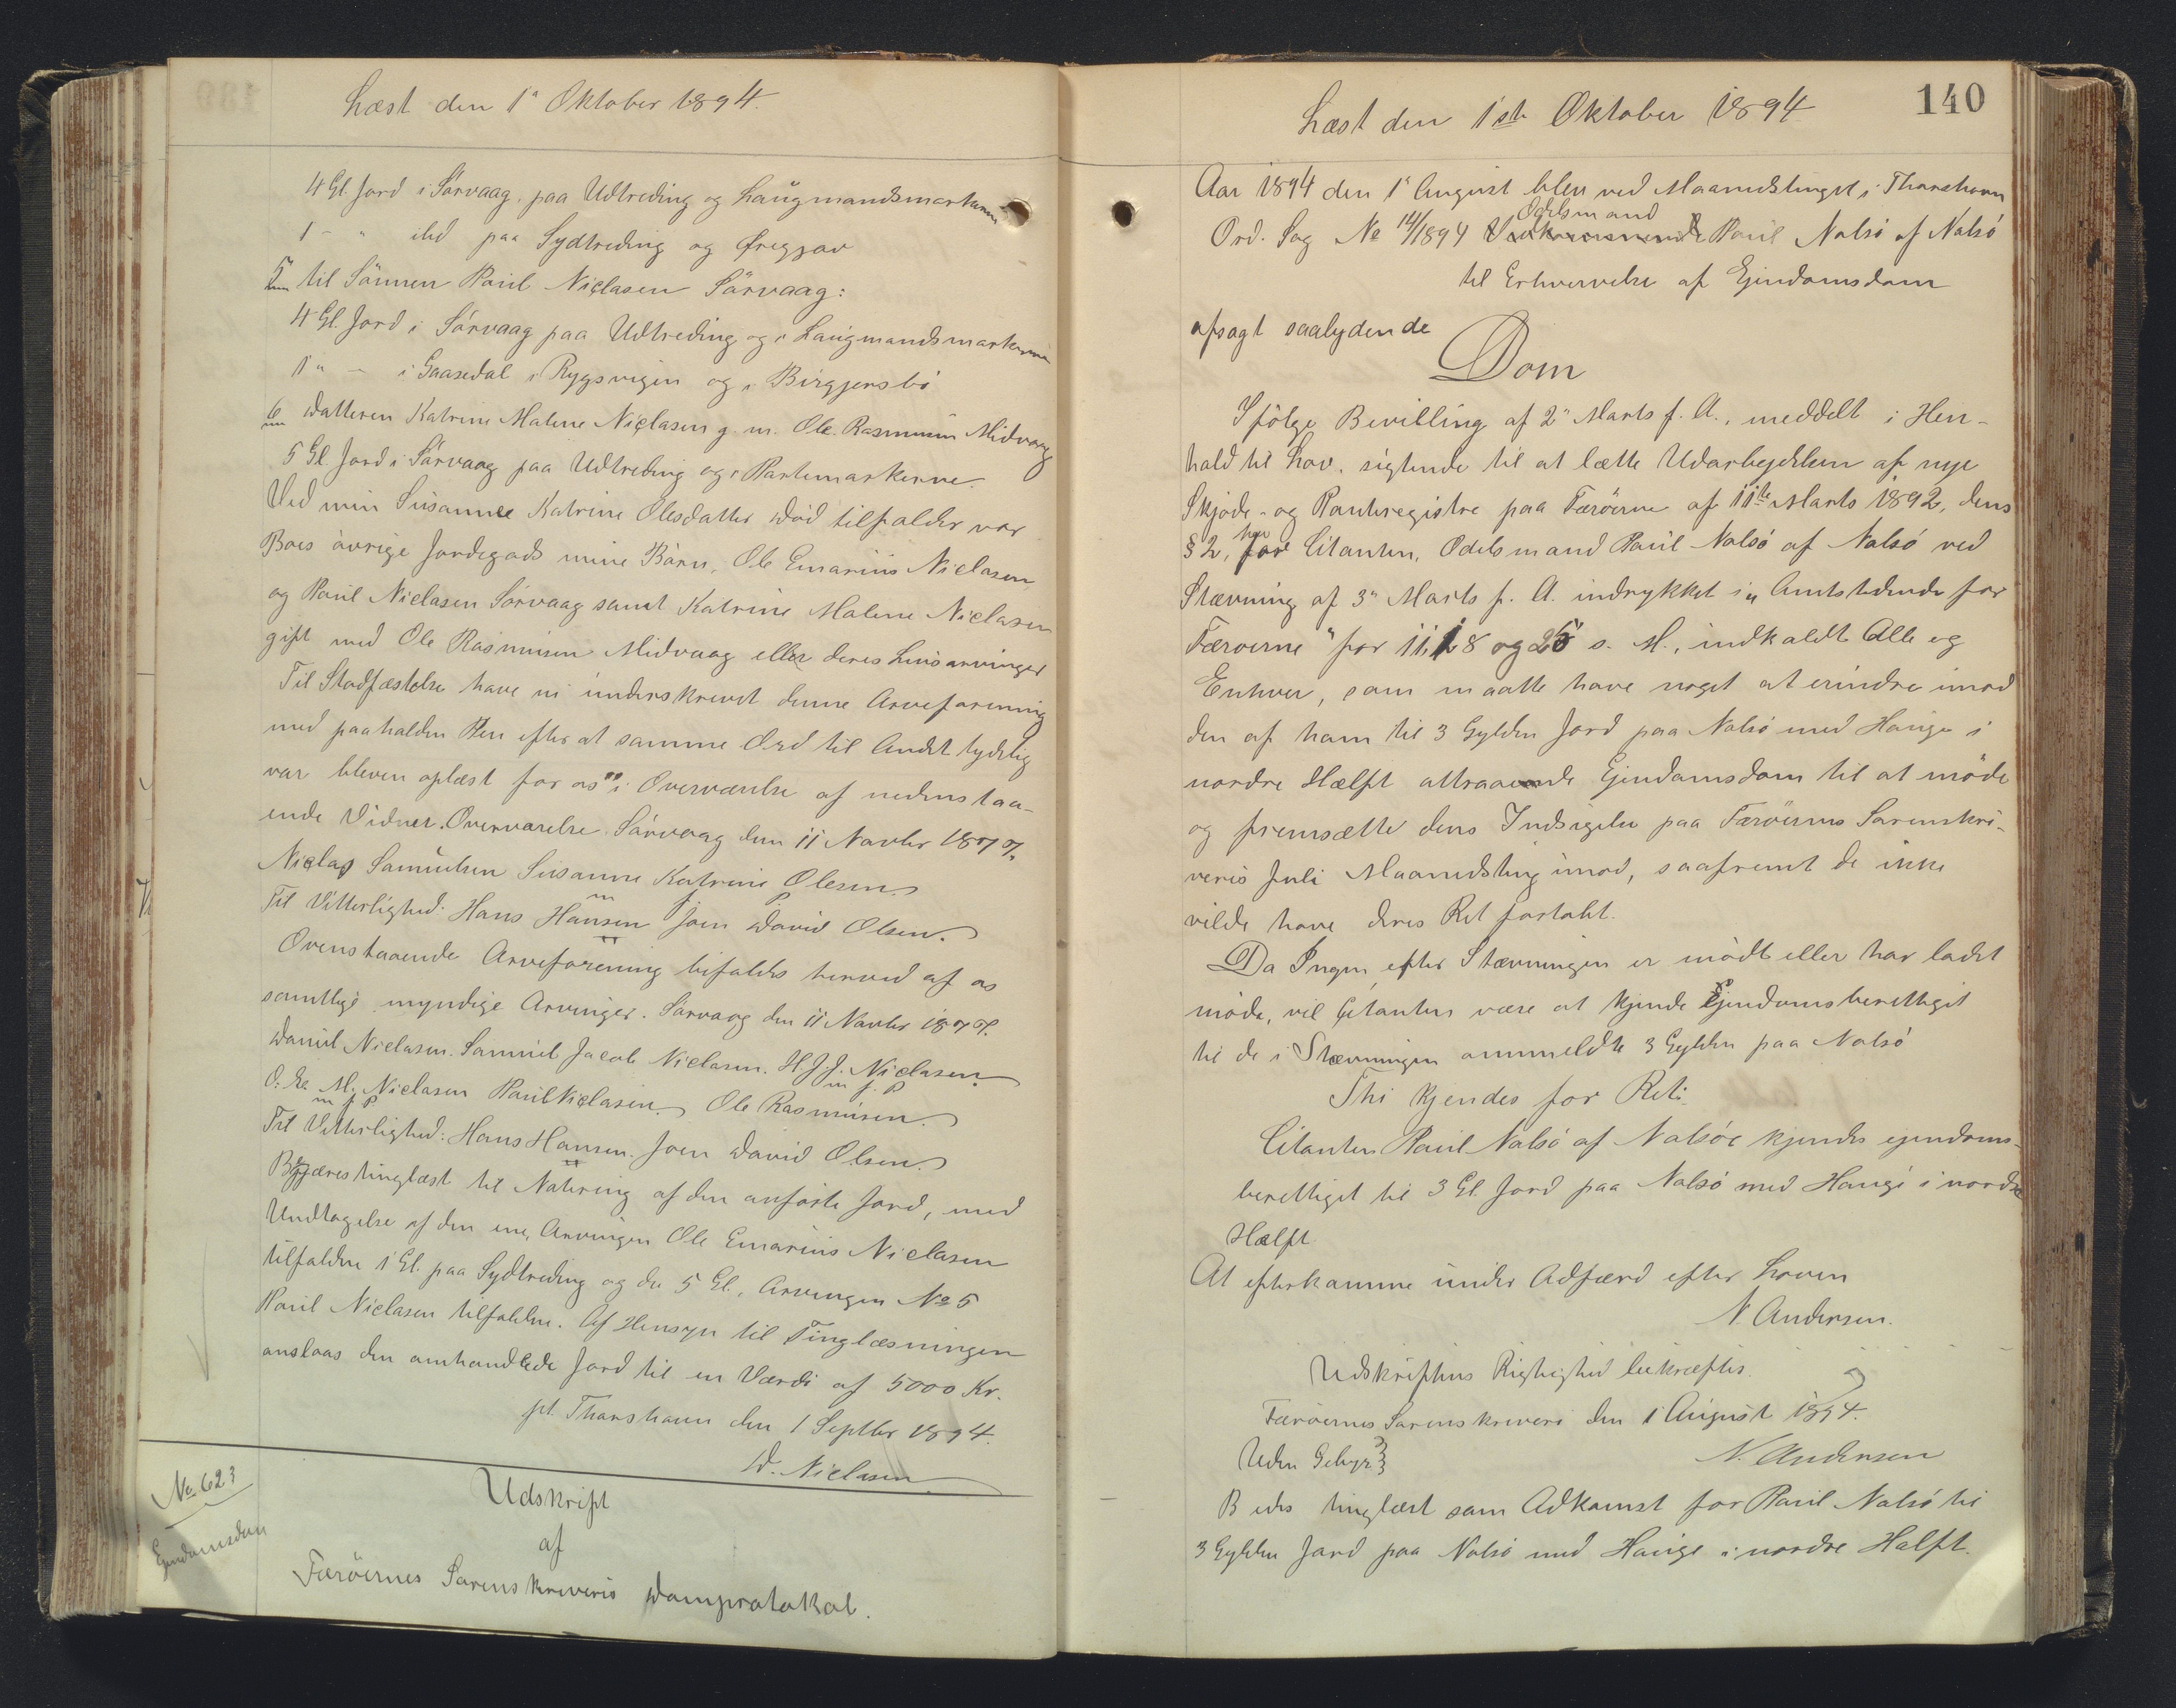 Læst den 1" Oktober 1894.
4 Gl. Jord i Sörvaag, paa Udtreding og Laugmandsmarkerne
1 - " ibd paa Sydtreding og Öregjov
5 til Sönnen Poul Niclasen Sörvaag:
4 Gl. Jord i Sörvaag paa Udtreding og i Laugmandsmarkerne
1 " - i Gaasedal i Rygsvigin og i Birgjersbö
6 Datteren Katrine Malene Niclasen g. m. Ole Rasmusen Midvaag
5 Gl. Jord i Sörvaag paa Udtreding og i Partemarkerne.
Ved min Susanne Katrine Olesdatter Död tilfalder vor
Boes övrige Jordegods mine Börn, Ole Emarius Niclasen
og Poul Niclasen Sörvaag samt Katrine Malene Niclasen
gift med Ole Rasmusen Midvaag eller deres Livsarvinger
Til Stadfæstelse have vi underskrevet denne Arveforening
med paaholden Pen efter at samme Ord til Andet tydelig
var bleven oplæst for os i Overværelse af nedenstaa-
ende Vidner. Overværelse. Sörvaag den 11 Novbr 1877.
Niclas Samuelsen Susanne Katrine Olesen
m f P
Til Vitterlighed: Hans Hansen Joen David Olsen.
Ovenstaaende Arveforening bifaldes herved af os
samtlige myndige Arvinger. Sörvaag den 11 Novbr 1877.
Daniel Niclasen. Samuel Jacob Niclasen. H. J. J. Niclasen.
O. E. M. Niclasen Poul Niclasen. Ole Rasmusen.
m f P m f P
Til Vitterlighed: Hans Hansen. Joen David Olsen.
Begjæres tinglæst til Notering af den anförte Jord, med
Undtagelse af den ene, Arvingen Ole Emarius Niclasen
tilfaldne 1 Gl. paa Sydtreding og de 5 Gl., Arvingen No 5
Poul Niclasen tilfaldne. Af Hensyn til Tinglæsningen
anslaas den omhandlede Jord til en Værdi af 5000 Kr.
pt. Thorshavn den 1 Septbr 1894.
D. Niclasen
No 623
Ejendomsdom
Udskrift
af
Færöernes Sorenskriveris Domprotokol.
140
Læst den 1ste Oktober 1894
Aar 1894 den 1" August blev ved Maanedstinget i Thorshavn
Odelsmand
Ord. Sag No 14/1894 Poul Nolsö af Nolsö
til Erhvervelse af Ejendomsdom
afsagt saalydende
Dom
Ifölge Bevilling af 2" Marts f. A., meddelt i Hen-
hold til Lov, sigtende til at lette Udarbejdelsen af nye
Skjöde- og Panteregistre paa Færöerne af 11te Marts 1892, dens
§ 2, har Citanten, Odelsmand Poul Nolsö af Nolsö ved
Stævning af 3" Marts f. A. indrykket i "Amtstidende for
Færöerne" for 11, 18 og 25 s. M., indkaldt Alle og
Enhver, som maatte have noget at erindre imod
den af ham til 3 Gylden Jord paa Nolsö med Hauge i
nordre Hælft attraaende Ejendomsdom til at möde
og fremsætte dens Indsigelse paa Færöernes Sorenskri-
veris Juli Maanedsting imod, saafremt de ikke
vilde have deres Ret fortabt.
Da Ingen efter Stævningen er mödt eller har ladet
möde, vil Citanten være at kjende Ejendomsberettiget
til de i Stævningen ommeldte 3 Gylden paa Nolsö
Thi kjendes for Ret:
Citanten Poul Nolsö af Nolsöe kjendes ejendoms-
berettiget til 3 Gl. Jord paa Nolsö med Haugi i nordre
Hælft
At efterkomme under Adfærd efter Loven
N. Andersen.
Udskriftens Rigtighed bekræftes.
Færöernes Sorenskriveri den 1 August 1894.
Uden Gebyr N. Andersen
Bedes tinglæst som Adkomst for Poul Nolsö til
3 Gylden Jord paa Nolsö med Hauge i nordre Halft.